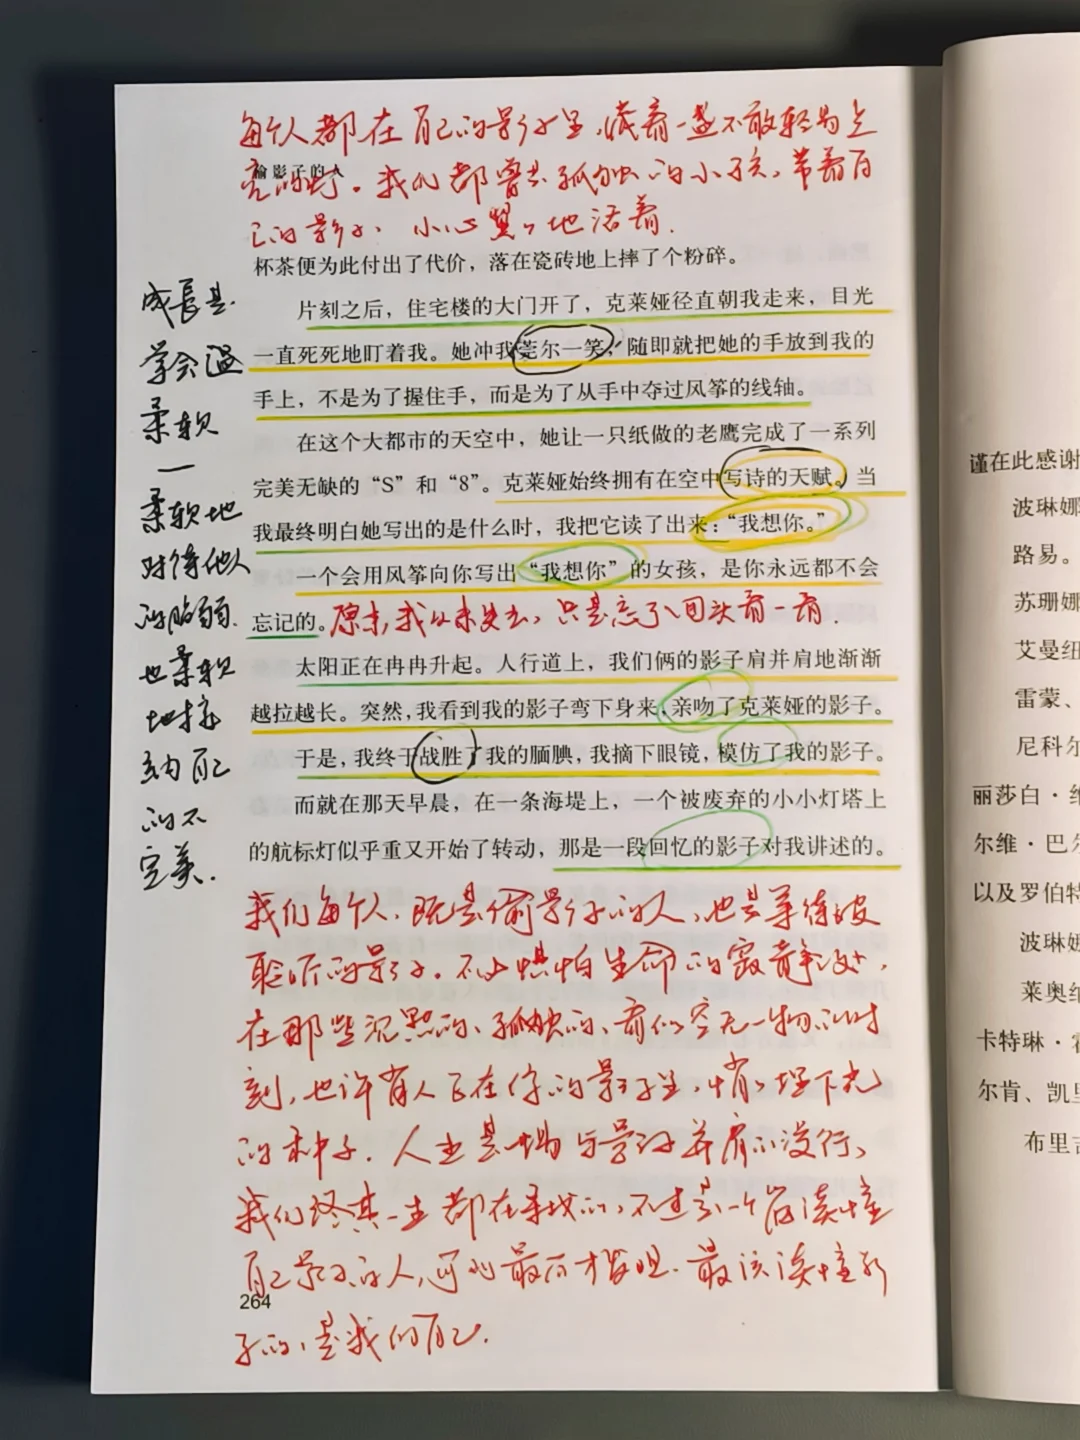 每个人都在自己的影子里,藏着一盏不敢轻易点
偷影子的人
亮的灯。我们都曾是孤独的小孩,带着自
己的影子、小心翼翼地活着.
杯茶便为此付出了代价，落在瓷砖地上摔了个粉碎。
片刻之后，住宅楼的大门开了，克莱娅径直朝我走来，目光
一直死死地盯着我。她冲我莞尔一笑，随即就把她的手放到我的
手上，不是为了握住手，而是为了从手中夺过风筝的线轴。
在这个大都市的天空中，她让一只纸做的老鹰完成了一系列
完美无缺的“S”和“8”。克莱娅始终拥有在空中写诗的天赋。当
我最终明白她写出的是什么时，我把它读了出来：“我想你。”
一个会用风筝向你写出“我想你”的女孩，是你永远都不会
忘记的。原来,我从未失去,只是忘了回头看一看.
太阳正在冉冉升起。人行道上，我们俩的影子肩并肩地渐渐
越拉越长。突然，我看到我的影子弯下身来，亲吻了克莱娅的影子。
于是，我终于战胜了我的腼腆，我摘下眼镜，模仿了我的影子。
而就在那天早晨，在一条海堤上，一个被废弃的小小灯塔上
的航标灯似乎重又开始了转动，那是一段回忆的影子对我讲述的。
成長是.
学会温
柔软
—
柔软地
对待他人
的脆弱.
也柔软
地接
纳自己
的不
完美.
我们每个人,既是偷影子的人,也是等待被
聆听的影子。不必惧怕生命的寂静处,
在那些沉默的、孤独的、看似空无一物的时
刻,也许有人已在你的影子里,悄悄埋下光
的种子.人生是一场与影子并肩的旅行、
我们终其一生都在寻找的,不过是一个能读懂
自己影子的人,可到最后才发现.最该读懂影
子的,是我们自己.
264
谨在此感谢
波琳娜
路易。
苏珊娜
艾曼纽
雷蒙、
尼科尔
丽莎白·维
尔维·巴尔
以及罗伯特
波琳娜
莱奥纳
卡特琳·霍
尔肯、凯里
布里吉